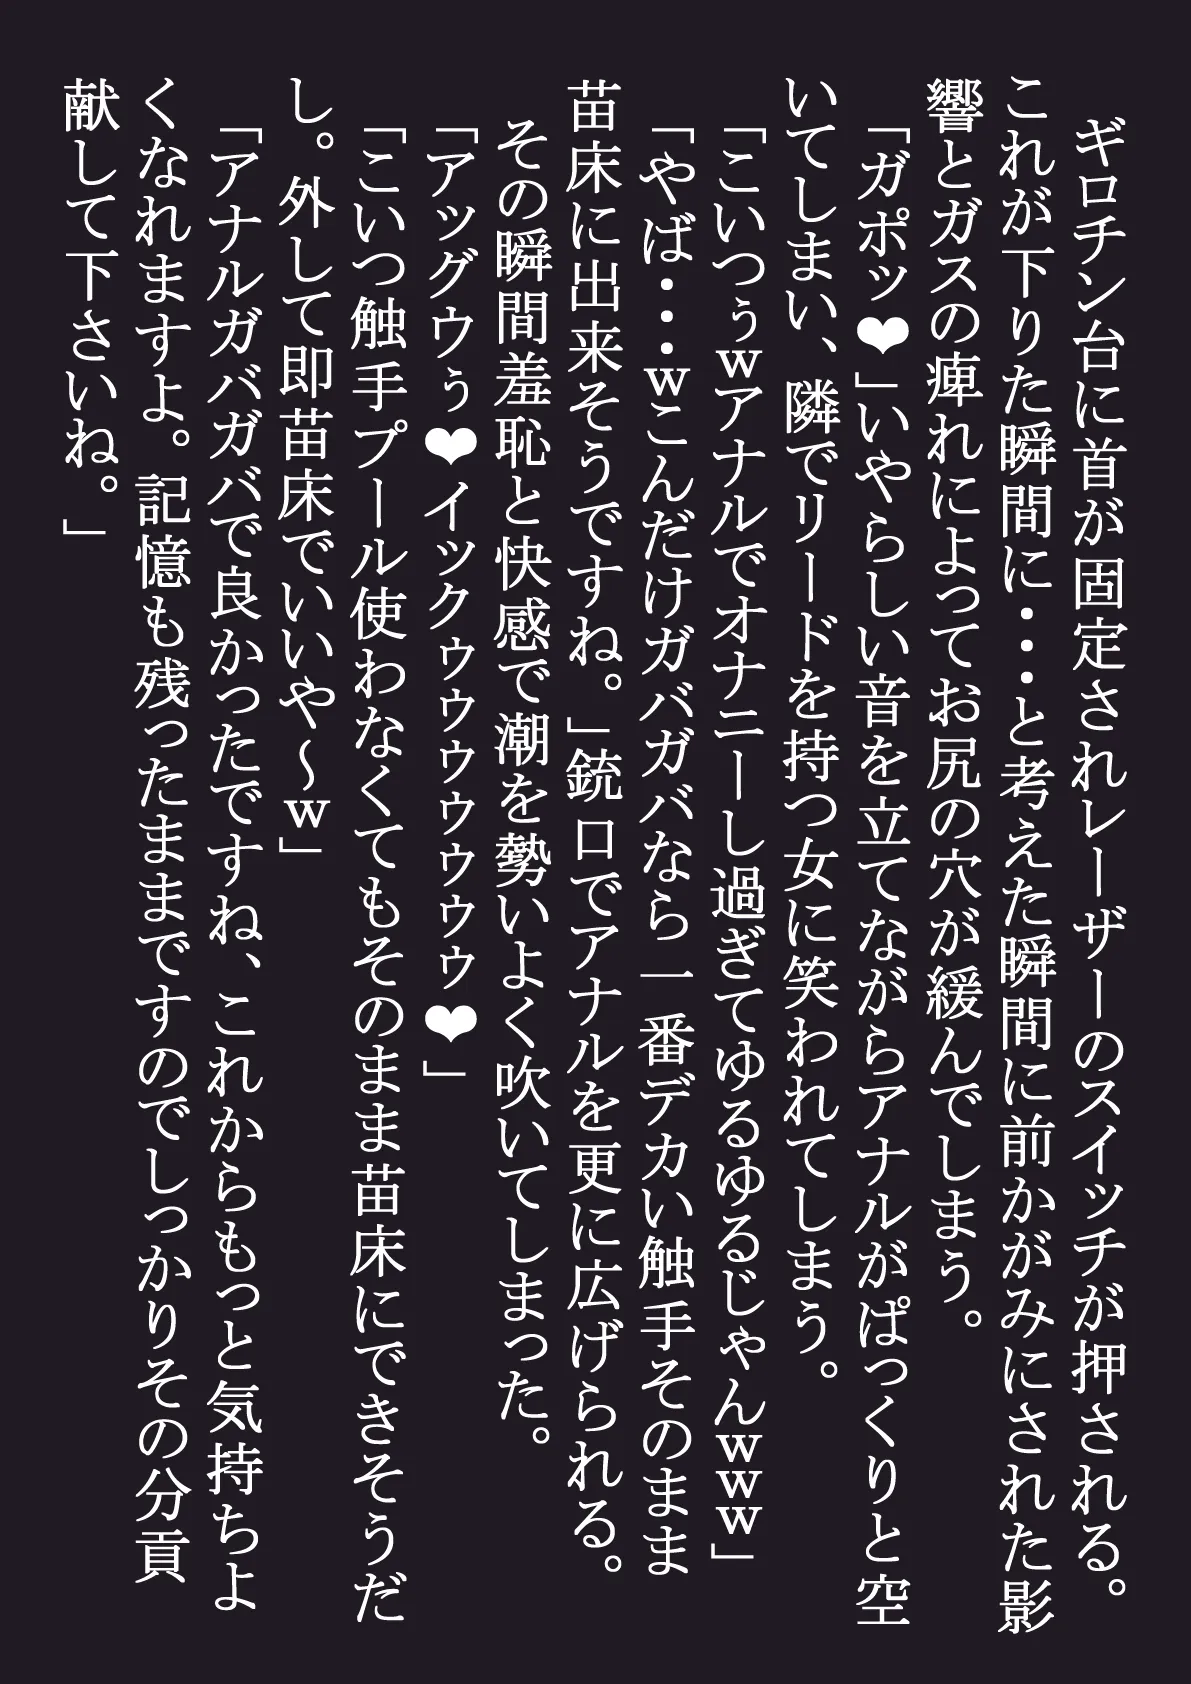 ギロチン台に首が固定されレーザーのスイッチが押される。
これが下りた瞬間に・・・と考えた瞬間に前かがみにされた影
響とガスの痺れによってお尻の穴が緩んでしまう。
「ガポッ❤」いやらしい音を立てながらアナルがぱっくりと空
いてしまい、隣でリードを持つ女に笑われてしまう。
「こいつぅwアナルでオナニーし過ぎてゆるゆるじゃんwww」
「やば・・・wこんだけガバガバなら一番デカい触手そのまま
苗床に出来そうですね。」銃口でアナルを更に広げられる。
その瞬間羞恥と快感で潮を勢いよく吹いてしまった。
「アッグウぅ❤イックゥゥゥゥゥゥゥ❤」
「こいつ触手プール使わなくてもそのまま苗床にできそうだ
し。外して即苗床でいいや～w」
「アナルガバガバで良かったですね、これからもっと気持ちよ
くなれますよ。記憶も残ったままですのでしっかりその分貢
献して下さいね。」